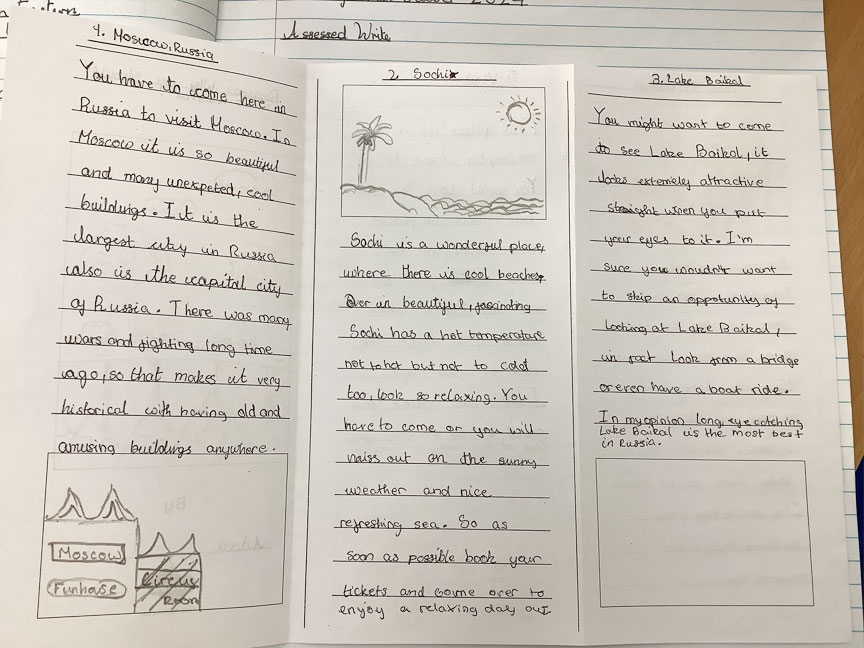 Assessed Write
1. Moscow, Russia
You have to come here in
Russia to visit Moscow. In
Moscow it is so beautiful
and many unexpeted, cool
buildings. It is the
largest city in Russia
also is the capital city
of Russia. There was many
wars and fighting long time
ago, so that makes it very
historical with having old and
amusing buildings anywhere.
Moscow
Funhase
Circus
Room
2. Sochi
Sochi is a wonderful place,
where there is cool beaches
Over in beautiful, fascinating
Sochi has a hot temperature
not to hot but not to cold
too, look so relaxing. You
have to come or you will
miss out on the sunny
weather and nice
refreshing sea. So as
soon as possible book your
tickets and come over to
enjoy a relaxing day out
3. Lake Baikal
You might want to come
to see Lake Baikal, it
looks extremely attractive
straight when you put
your eyes to it. I'm
sure you wouldn't want
to skip an oppotunity of
looking at Lake Baikal,
in fact look from a bridge
or even have a boat ride.
In my opinion long, eye catching
Lake Baikal is the most best
in Russia.